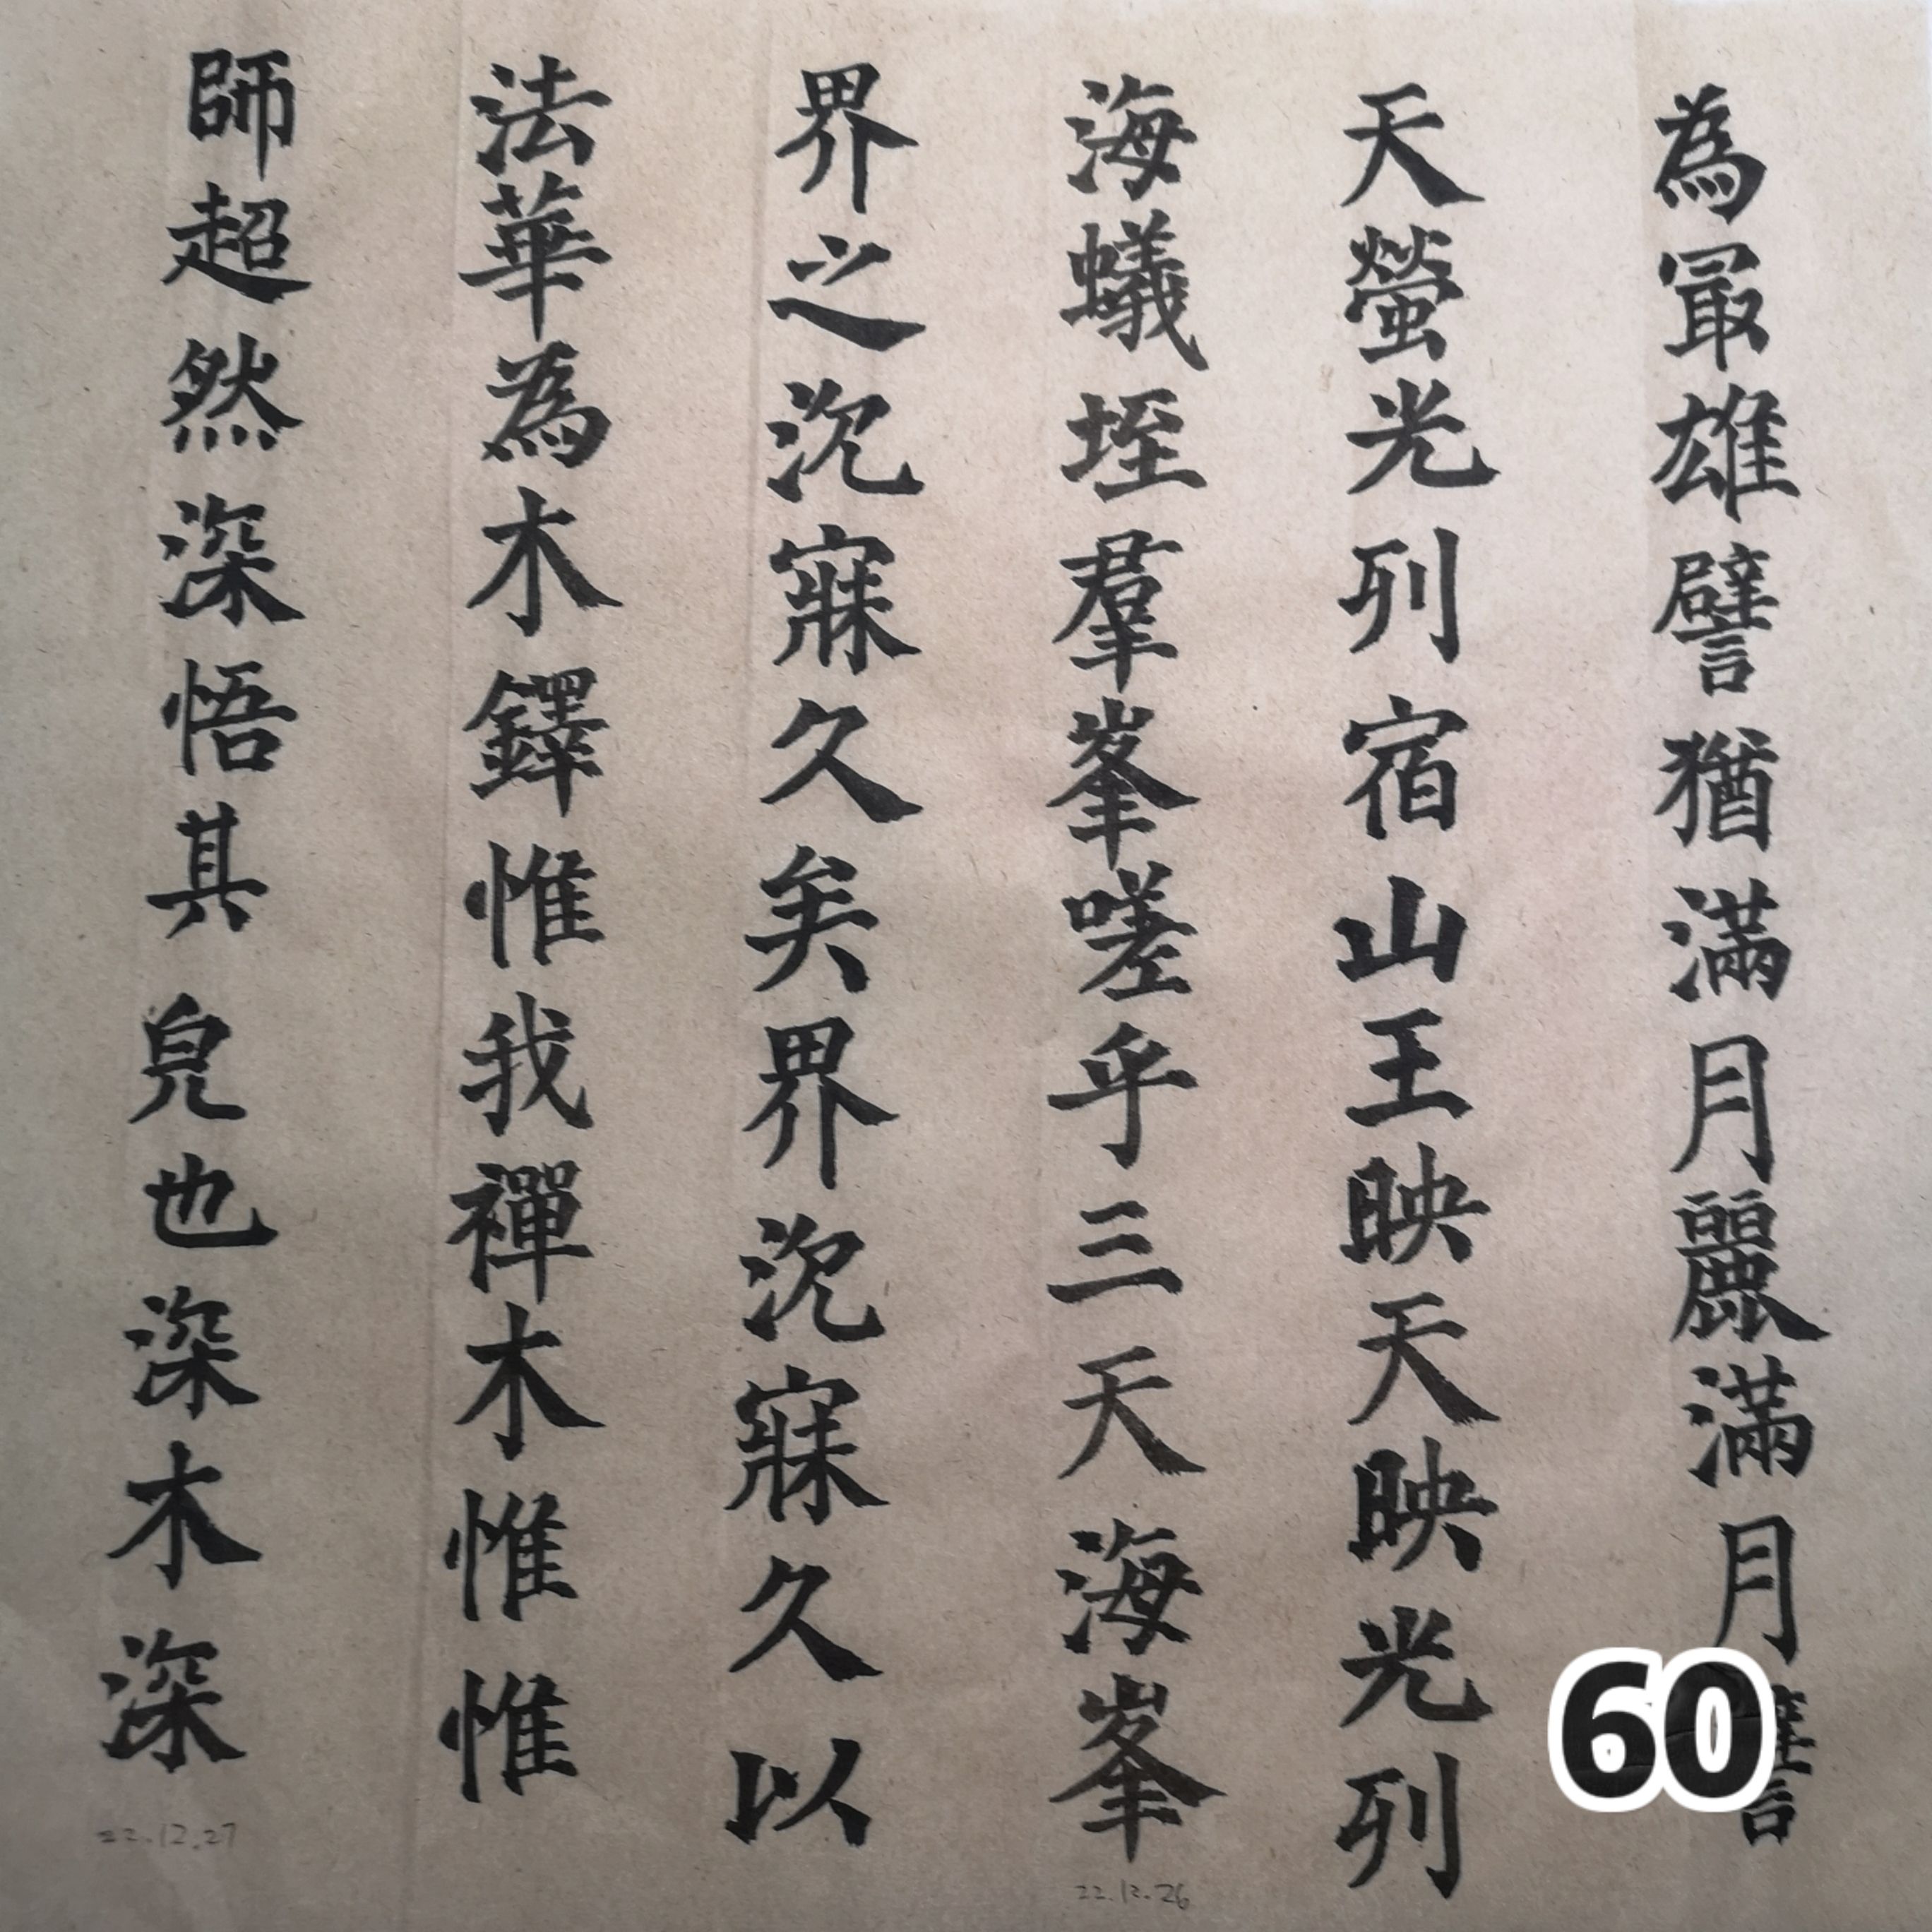 為冣雄譬猶滿月麗滿月譬
天螢光列宿山王映天映光列
海蟻垤羣峯嗟乎三天海峯
界之沉寐久矣界沉寐久以
法華為木鐸惟我禪木惟惟
師超然深悟其皃也深木深
60
22.12.26
22.12.27